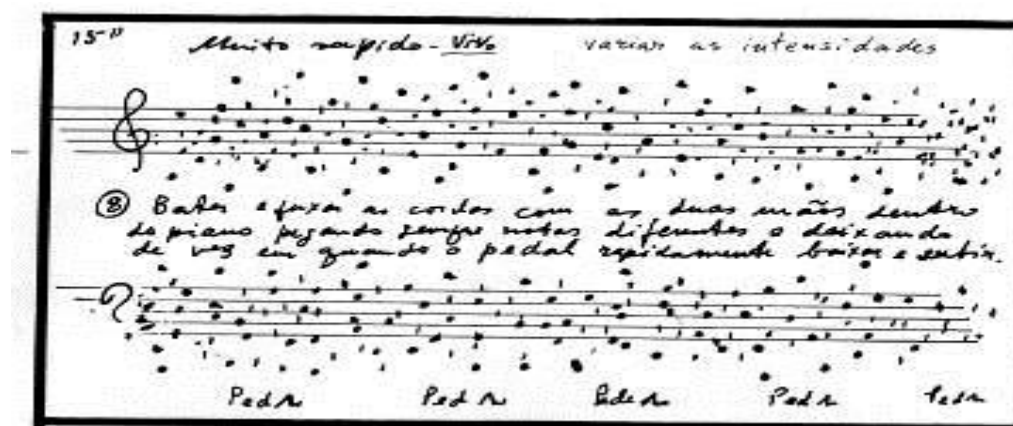 15" Muito rapido - Vivo variar as intensidades
⑧ Bater e puxar as cordas com as duas mãos dentro
do piano pegando sempre notas diferentes e deixando
de vez em quando o pedal rapidamente baixar e subir.
Ped Ped Ped Ped